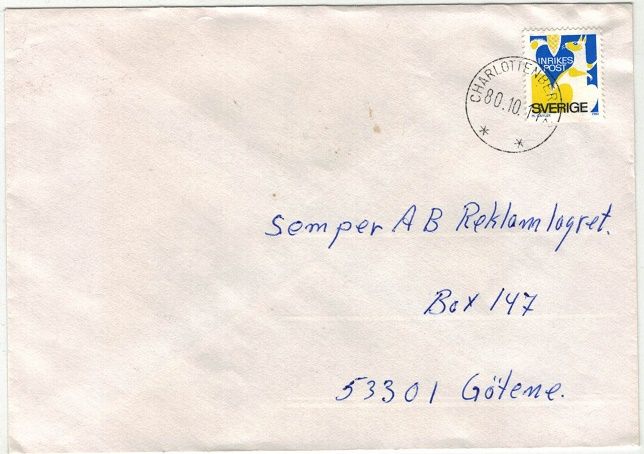 INRIKES
POST
SVERIGE
CHARLOTTENBERG
80.10.
Semper AB Reklamlagret.
Box 147
53301 Götene.